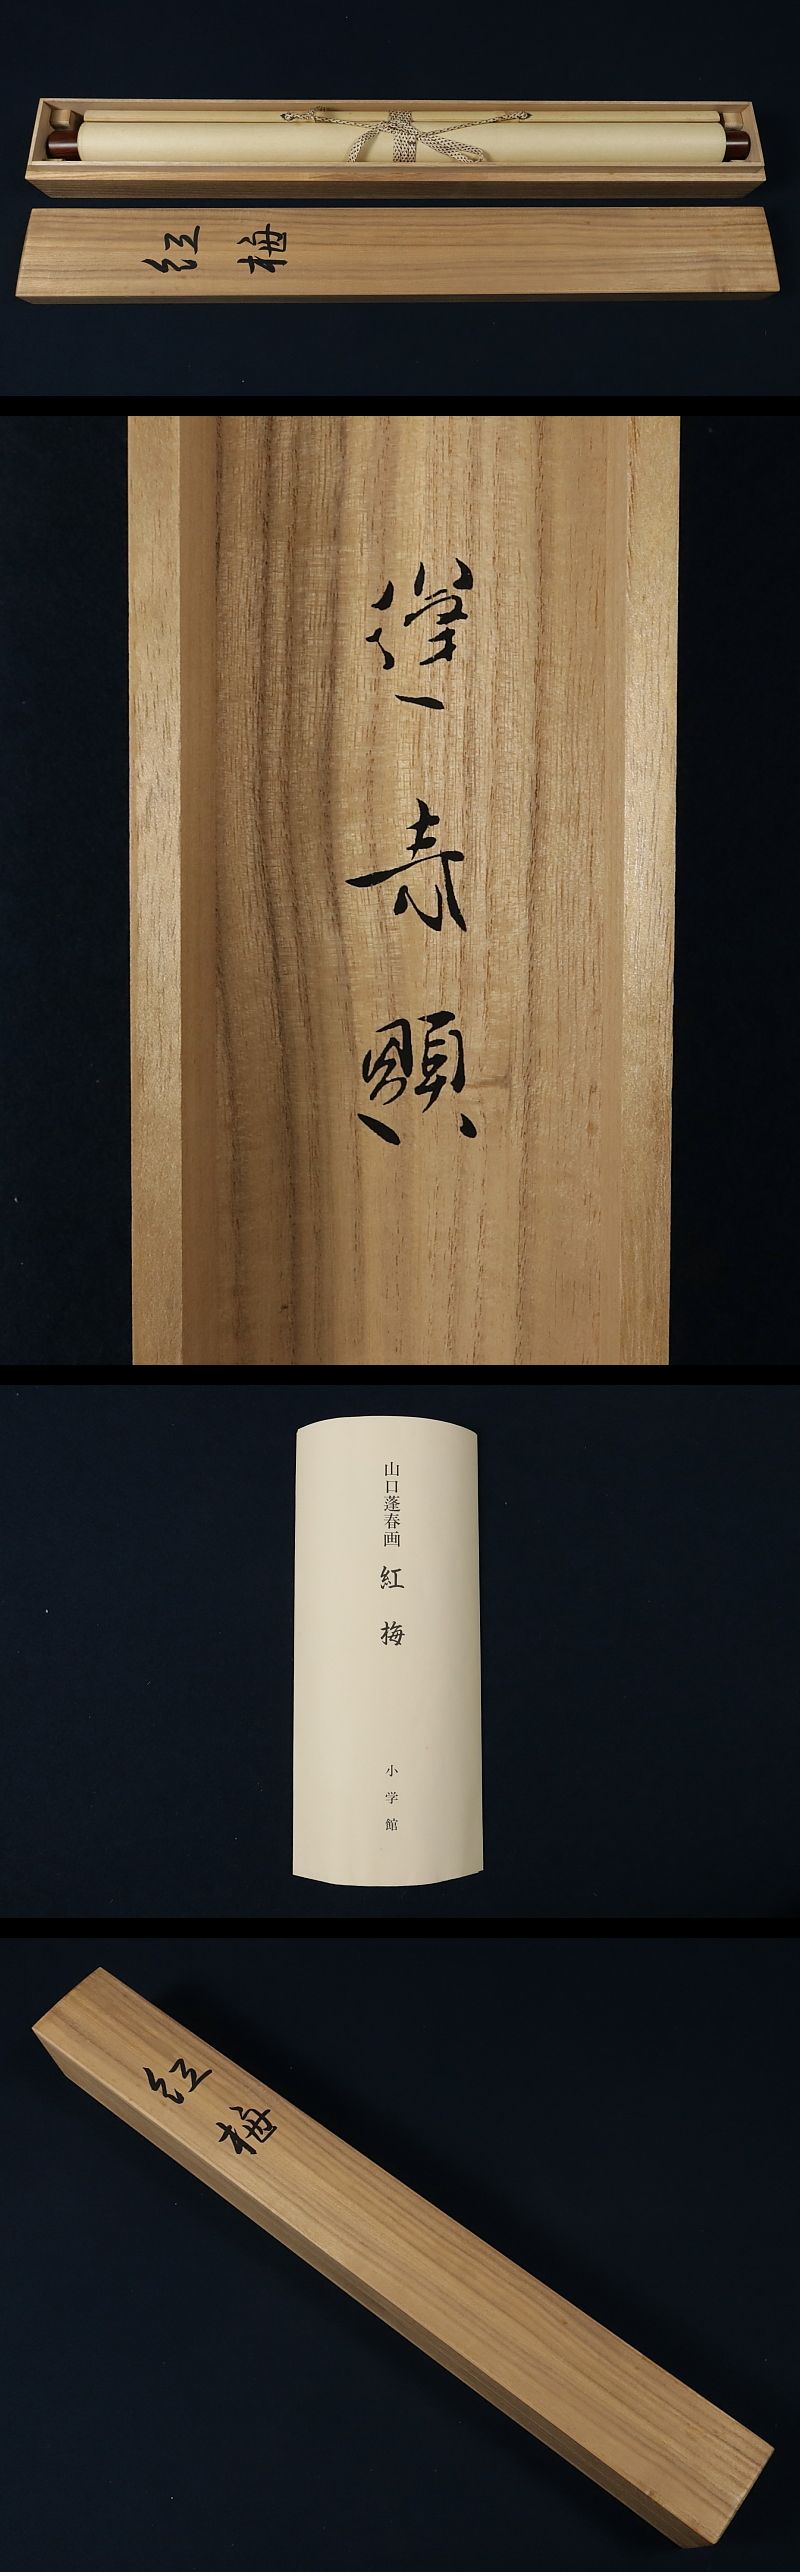 紅梅
蓬春題
山口蓬春画 紅梅
小学館
紅梅